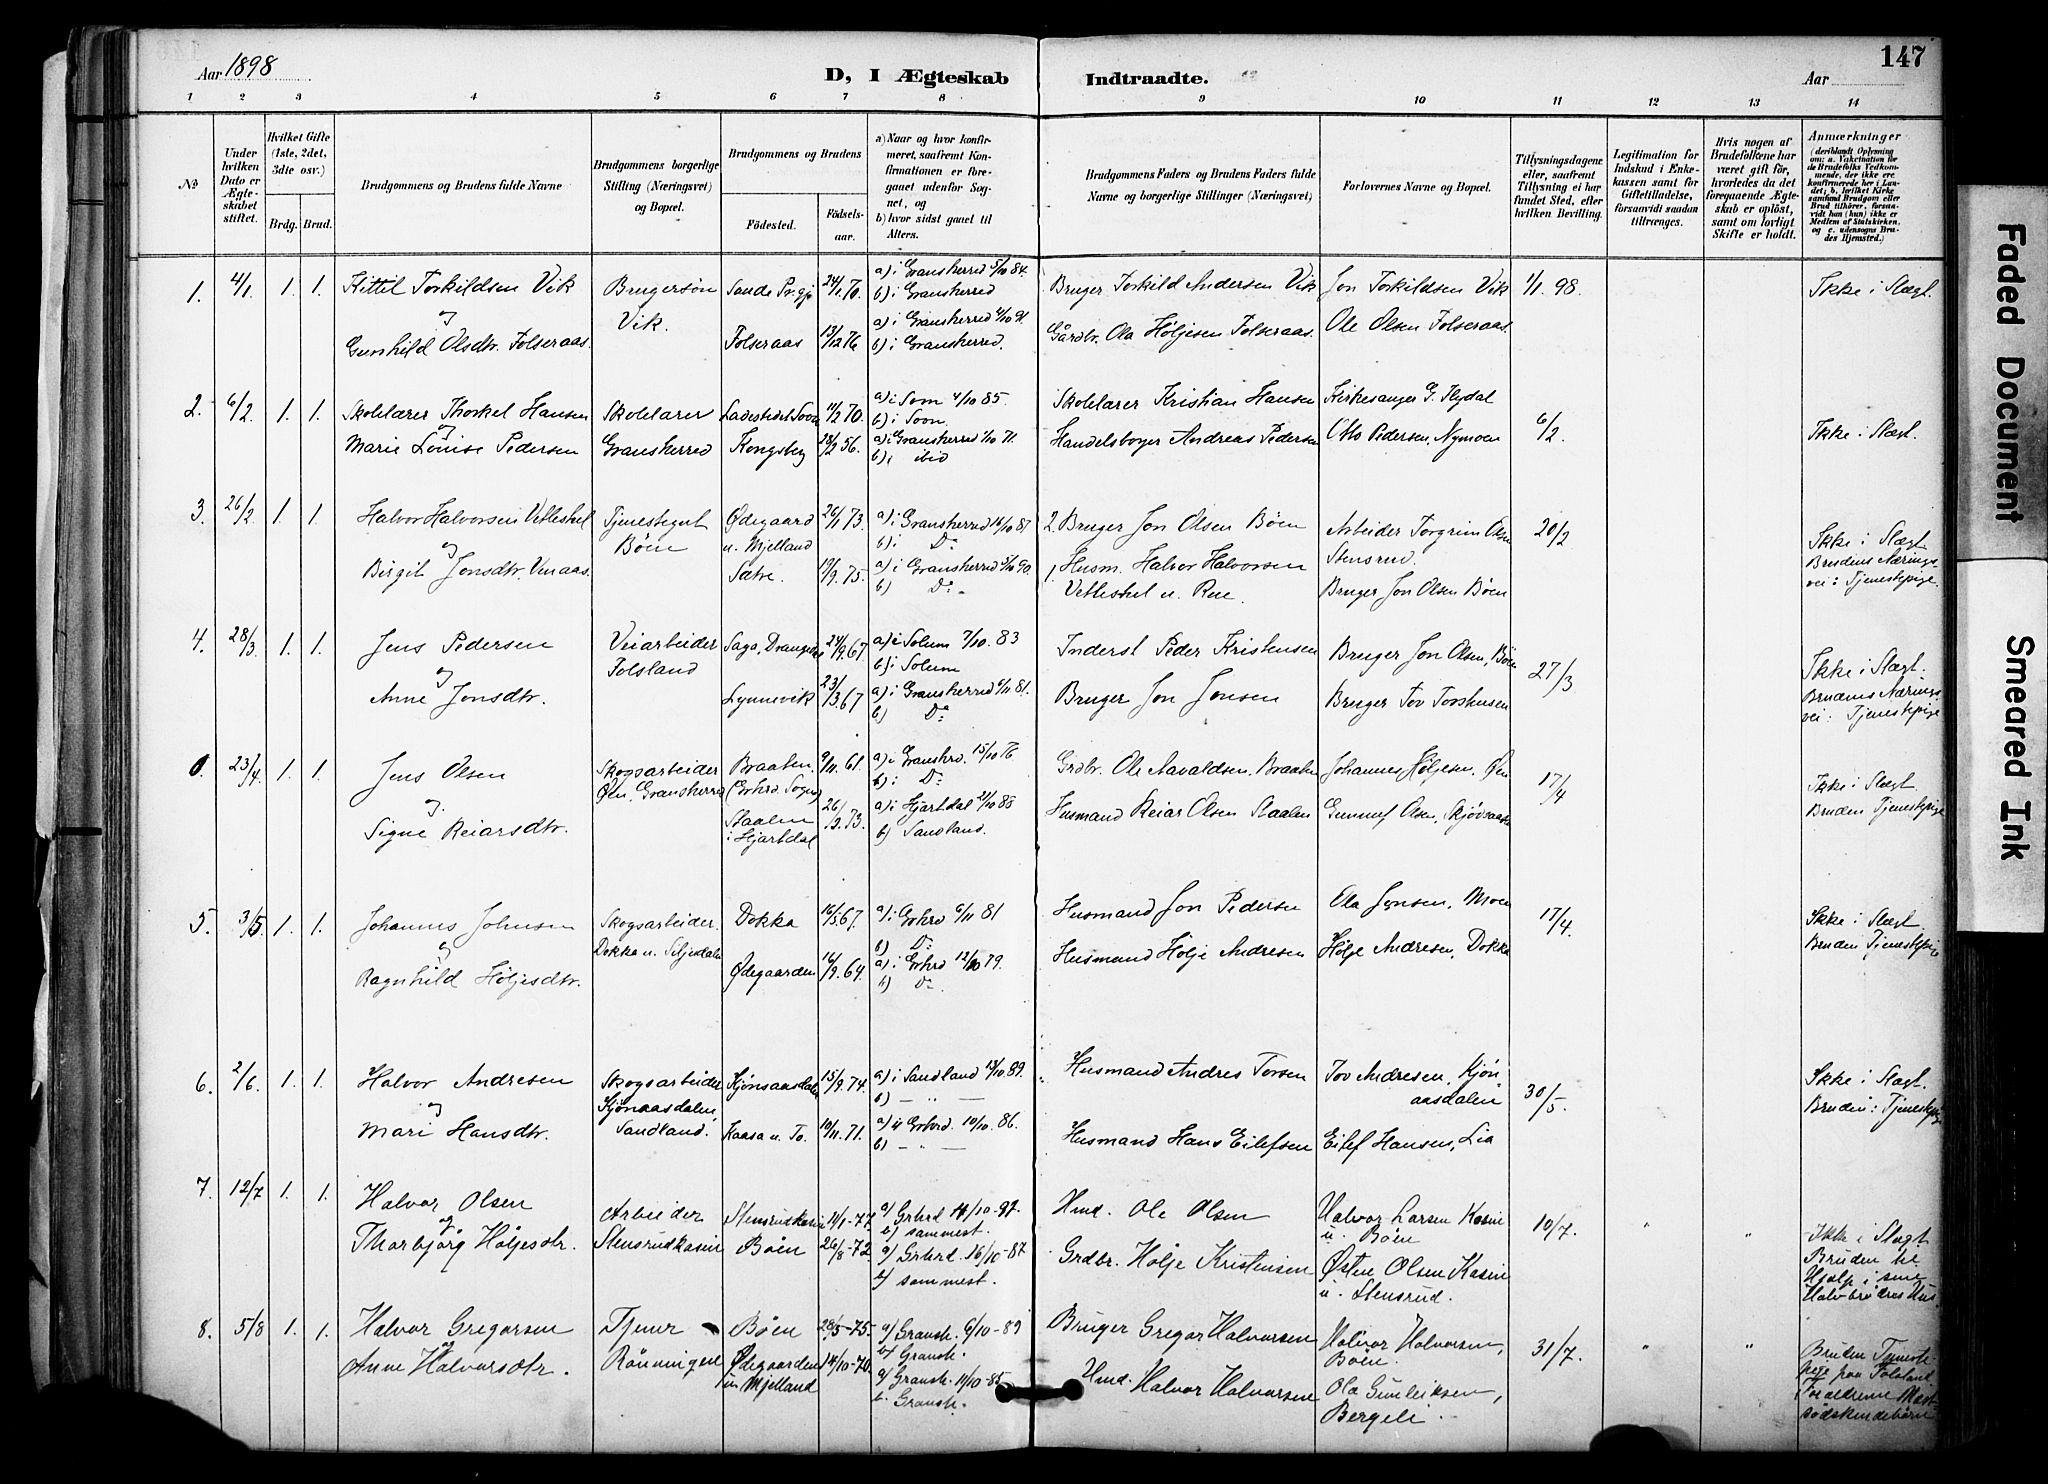 Aar 1898
D, I Ægteskab Indtraadte.
147
Aar
1 2 3 4 5 6 7 8 9 10 11 12 13 14
№
Under hvilken Dato er Ægteskabet stiftet.
Hvilket Gifte (1ste, 2det, 3die osv.)
Brdg. Brud.
Brudgommens og Brudens fulde Navne
Brudgommens borgerlige Stilling (Næringsvei) og Bopæl.
Brudgommens og Brudens
Födested.
Födselsaar.
a) Naar og hvor konfirmeret, saafremt Konfirmationen er foregaaet udenfor Sognet, og
b) hvor sidst gaaet til Alters.
Brudgommens Faders og Brudens Faders fulde Navne og borgerlige Stillinger (Næringsvei)
Forlovernes Navne og Bopæl.
Tillysningsdagene eller, saafremt Tillysning ei har fundet Sted, efter hvilken Bevilling.
Legitimation for Indskud i Enkekassen samt for Giftetilladelse, forsaavidt saadan tiltrænges.
Hvis nogen af Brudefolkene har været gift för, hvorledes da det foregaaende Ægteskab er oplöst, samt om lovligt Skifte er holdt.
Anmærkninger
(deriblandt Oplysning om: a. Vakcination för de Brudefolks Vedkommende, der ikke ere konfirmerede her i Landet; b. hvilket Kirkesamfund Brudgom eller Brud tilhörer, forsaavidt han (hun) ikke er Medlem af Statskirken, og c. udensogns Brudes Hjemsted.)
1. 4/1. 1. 1. Kittil Torkildsen Vik
og
Gunhild Olsdtr. Folseraas.
Brugersøn
Vik.
Sande Pr.gj. 24/1.70.
Folseraas 13/12 76
a) i Gransherred 5/10 84.
b) i Gransherred
a) i Gransherred 4/10 91.
b) i Gransherred.
Bruger Torkild Andersen Vik
Gårdbr. Ola Høljesen Folseraas.
Jon Torkildsen Vik
Ole Olsen Folseraas
1/1. 98.
Ikke i Slægt.
2. 6/2. 1. 1. Skolelærer Thorkel Hansen
og
Marie Louise Pedersen
Skolelærer
Gransherred
Ladestedet Soon 11/2 70.
Kongsberg 28/2 56.
a) i Soon 4/10 85.
b) i Soon.
a) i Gransherred 1/10 71.
b) i ibid
Skolelærer Kristian Hansen
Handelsborger Andreas Pedersen
Kirkesanger G. Flydal
Otto Pedersen, Nymoen
6/2.
Ikke i Slægt.
3. 26/2. 1. 1. Halvor Halvorsen Vetleshul
og
Birgit Jonsdtr. Venaas.
Tjenestegut
Bøen
Ødegaard u. Mjelland 26/1 73.
Sætre. 19/9. 75.
a) i Gransherred 14/10 87
b) i Do
a) i Gransherred 5/10 90.
b) Do.
2. Bruger Jon Olsen Bøen
1. Husm. Halvor Halvorsen
Vetleshul u. Rue.
Arbeider Torgrim Olsen
Stensrud.
Bruger Jon Olsen Bøen
20/2
Ikke i Slægt
Brudens Nærings-
vei: Tjenestepige.
4. 28/3. 1. 1. Jens Pedersen
og
Anne Jonsdtr.
Veiarbeider
Folsland
Saga, Drangedal 24/9.67
Lynnevik 23/3.67
a) i Solum 7/10. 83
b) i Solum
a) i Gransherred 6/11 81.
b) Do
Inderst Peder Kristensen
Bruger Jon Jonsen
Bruger Jon Olsen, Bøen
Bruger Tov Torshusen
27/3
Ikke i Slægt.
Brudens Nærings-
vei: Tjenestepige
0. 23/4. 1. 1. Jens Olsen
og.
Signe Reiarsdtr.
Skogsarbeider
Øen, Gransherred
Braaten (Grhrd. Sogn) 9/11. 61.
Staalen i Hjartdal 26/2.73.
a) i Granshrd. 15/10 76
b) i Do
a) i Hjartdal 21/10 88
b) Sandland.
Grdbr. Ole Aavaldsen, Braaten
Husmand Reiar Olsen Staalen
Johannes Høljesen, Øen
Gunnuf Olsen, Skjøvsaasen
17/4
Ikke i Slægt
Bruden Tjenestepige
5. 3/5. 1. 1. Johannes Johnsen
og
Ragnhild Høljesdtr.
Skogsarbeider.
Dokka u. Siljedalen
Dokka 16/5 67.
Ødegaarden 16/9.64.
a) i Grhrd 6/11 81
b) Do
a) i Grhrd 12/10 79.
b) Do.
Husmand Jon Pedersen
Husmand Hølje Andresen
Ola Jonsen, Moen
Hølje Andresen, Dokka
17/4.
Ikke i Slægt
Bruden Tjenestepige
6. 2/6. 1. 1. Halvor Andresen
og
Mari Hansdtr.
Skogsarbeider
Kjønaasdalen,
Sandland.
Kjønaasdalen 15/9.74.
Kaasa u. To. 10/11. 71.
a) i Sandland 13/10.89.
b) — " —
a) i Grhrd. 10/10. 86.
b) — " —
Husmand Andres Torsen
Husmand Hans Eilefsen
Tov Andresen, Kjøn-
aasdalen
Eilef Hansen, Lia
30/5.
Ikke i Slægt.
Bruden: Tjenestepige
7. 12/7 1. 1. Halvor Olsen
og
Thorbjørg Høljesdtr.
Arbeider
Stensrudkasin
Stensrudkasin 11/1-77
Bøen 26/8-72
a) Grhrd 11/10-92.
b) sammest.
a) Grhrd. 16/10-87
b) sammest.
Hmd. Ole Olsen
Grdbr. Hølje Kristensen
Halvor Larsen Kasin
u. Bøen
Østen Olsen Kasin
u. Stensrud.
10/7. " "
Ikke i Slægt
Bruden til
Hjælp i sine
Halvbrødres Hus.
8. 5/8 1. 1. Halvor Gregarsen
og
Anne Halvorsdtr.
Tjener
Rönningen
Bøen 28/5-75.
Ødegaarden u. Mjelland 14/10-70
a) Gransh. 6/10-89
b) Gransh.
a) Gransh. 11/10-85
b. Gransh.
Bruger Gregar Halvorsen
Hmd. Halvor Halvorsen
Halvor Halvorsen,
Bøen.
Ola Gunleiksen,
Bergeli.
31/7. " "
Bruden Tjeneste-
pige paa Folsland
Forældrene
södskendebörn
Faded Document
Smeared Ink